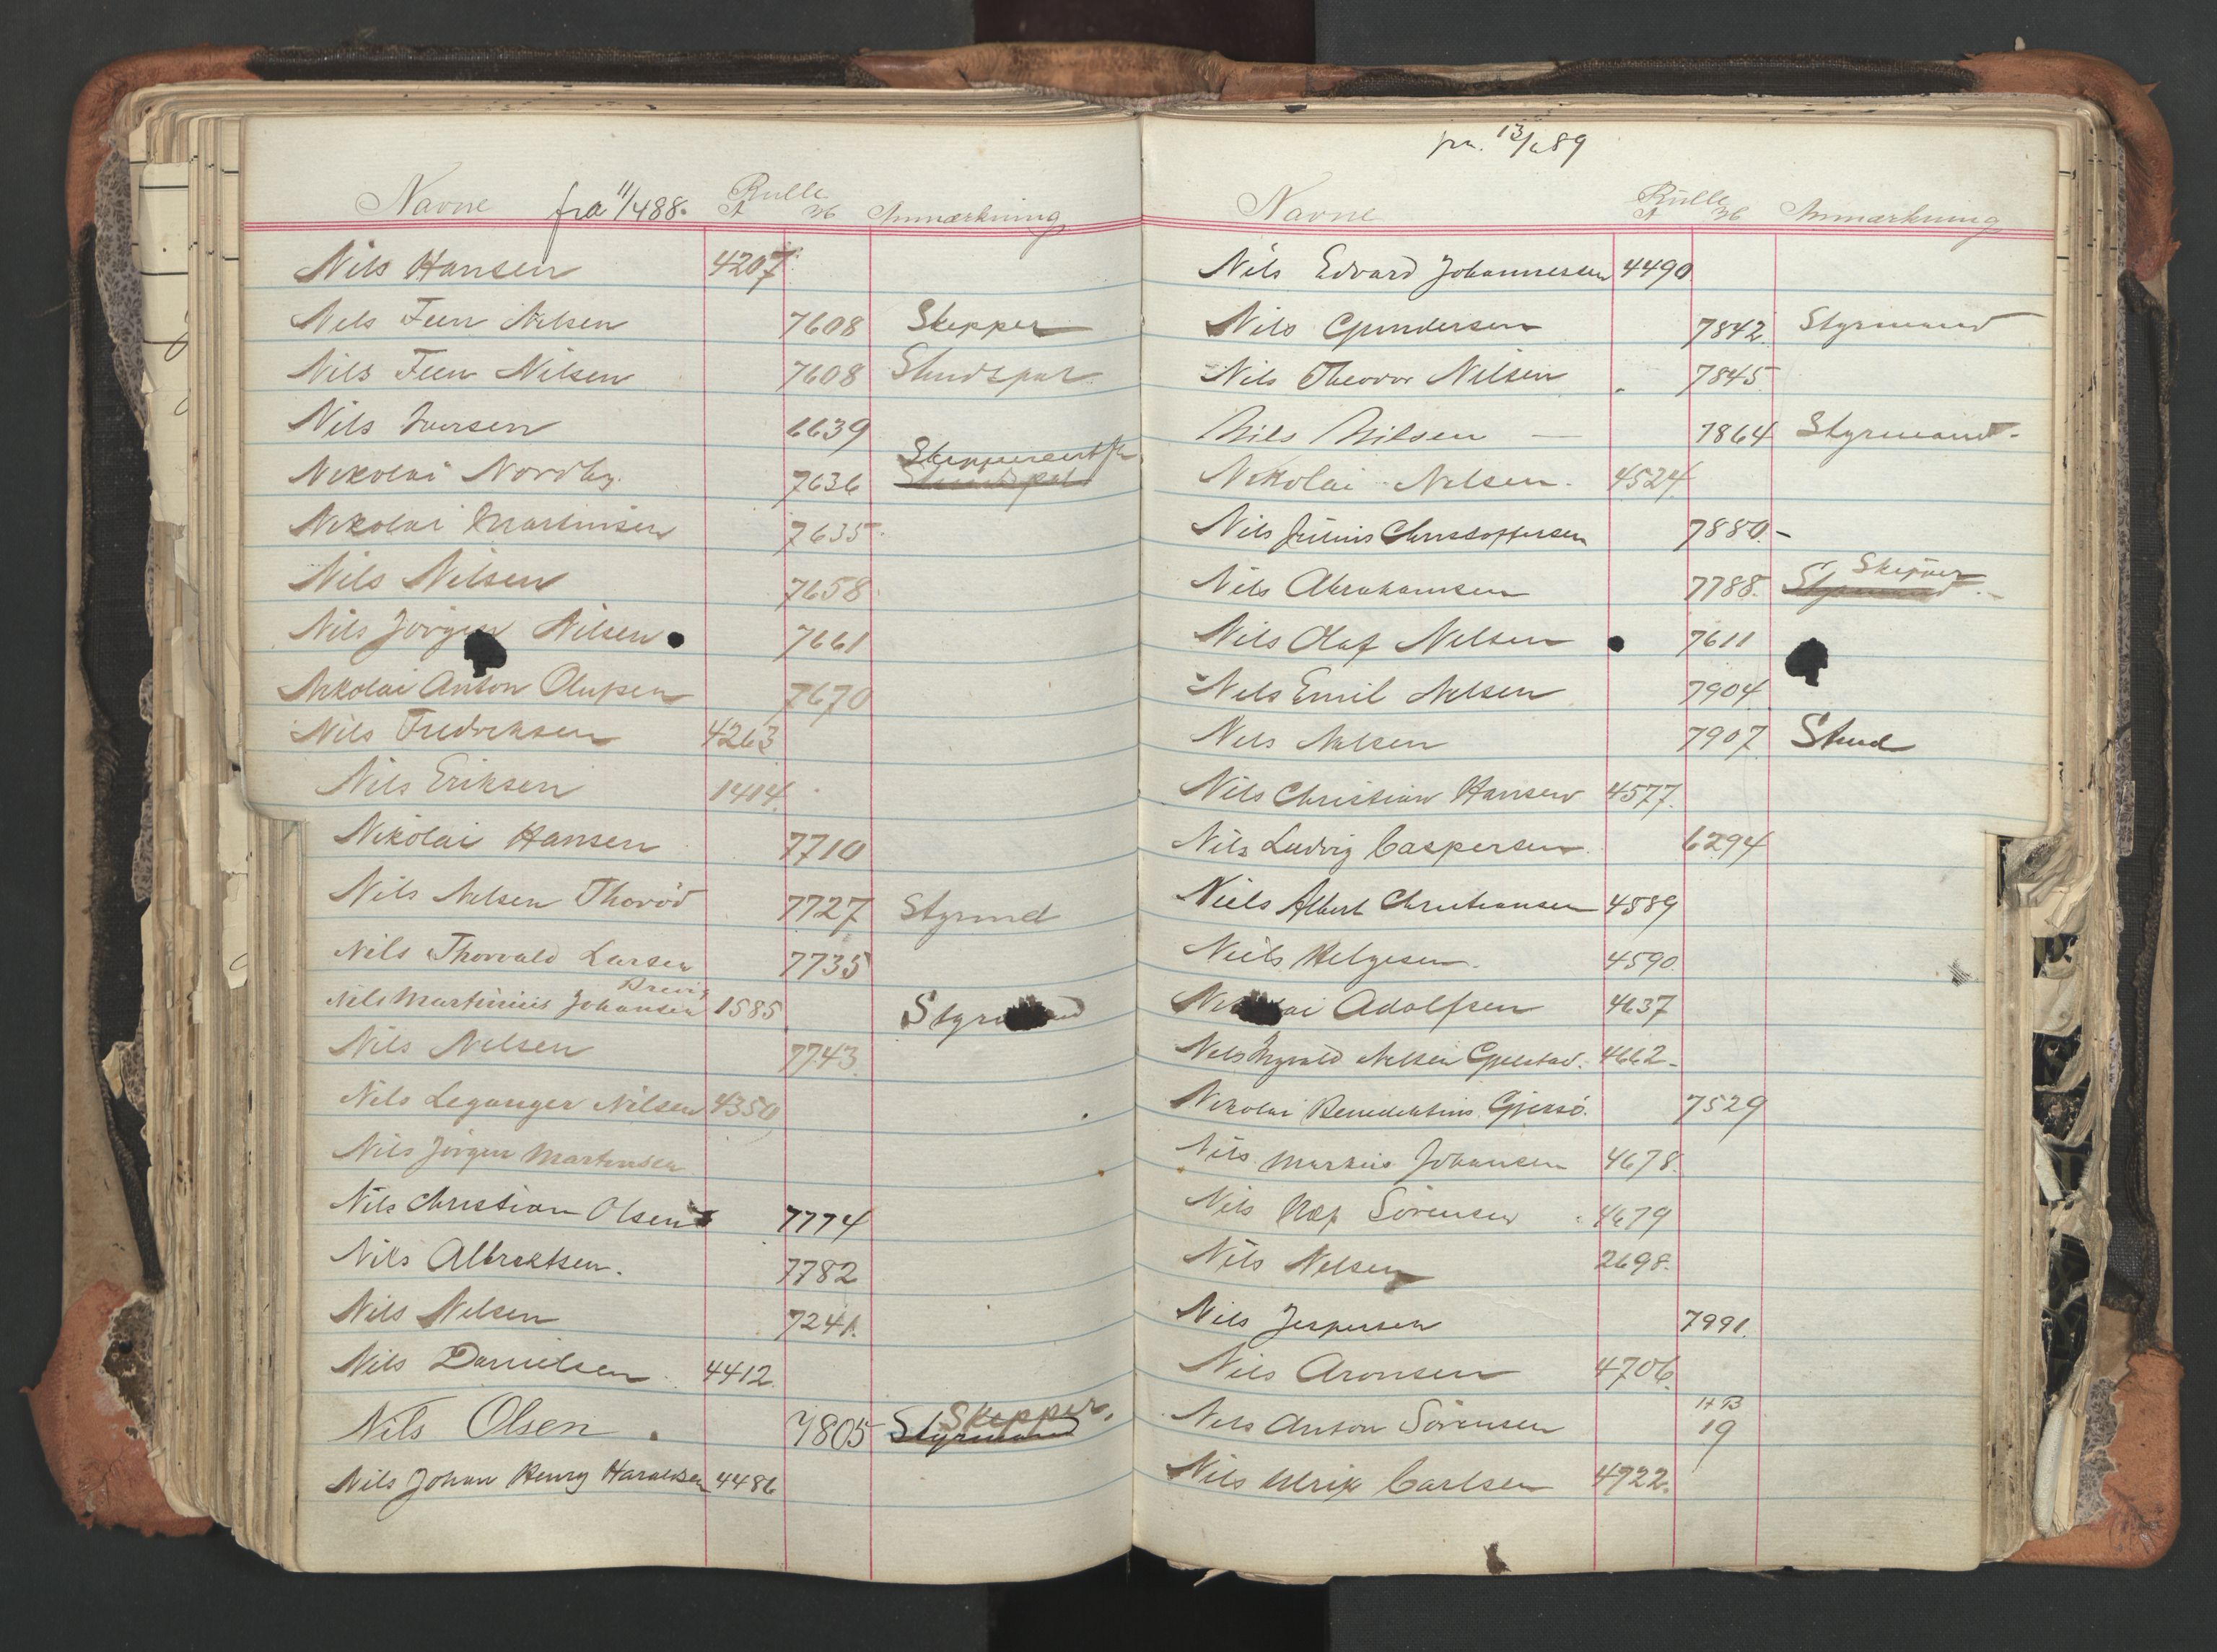 Navne fra 11/4 88. Rulle A 36 Anmærkning
Nils Hansen 4207
Nils Feen Nilsen 7608 Skepper
Nils Feen Nilsen 7608 Studspat
Nils Iversen 6639
Nikolai Nordby. 7636
Nikolai Martinsen 7635.
Nils Nilsen 7658
Nils Jørgen Nilsen 7661
Nikolai Anton Olufsen 7670
Nils Fredriksen 4263
Nils Eriksen 1414.
Nikolai Hansen 7710
Nils Nilsen Thorød 7727 Styrmd
Nils Thorvald Larsen 7735
Brevig
Nils Martinius Johansen 1585 Styrmand
Nils Nilsen 7743.
Nils Leganger Nilsen 4350
Nils Jørgen Martinsen
Nils Christian Olsen 7774
Nils Albrektsen. 7782
Nils Nilsen 7241.
Nils Danielsen. 4412
Skepper.
Nils Olsen. 7805 Styrmand
Nils Johan Henry Haraldsen 4486
fra 13/6 89
Navne Rulle A 36 Anmærkning
Nils Edvard Johannesen 4490
Nils Gundersen 7842. Styrmand
Nils Theodor Nilsen 7845
Nils Nilsen — 7864 Styrmand.
Nikolai Nilsen. 4524
Nils Julius Christoffersen 7880.-
Skipper
Nils Abrahamsen 7788. Styrmand.
Nils Olaf Nilsen 7611
Nils Emil Nilsen 7904
Nils Nilsen 7907 Stud
Nils Christian Hansen 4577.
Nils Ludvig Caspersen. 6294
Niels Albert Christiansen 4589
Niels Helgesen. 4590.
Nikolai Adolfsen 4637
Nils Nilsen 4662-
Nikolai Benediktius 7529
Nils Markus Johansen 4678.
Nils Sörensen 4679
Nils Nilsen 2698.
Nils Jespersen 7991.
Nils Aronsen 4706.
HB
Nils Anton Sörensen 19
Nils Ulrik Carlsen 4722.